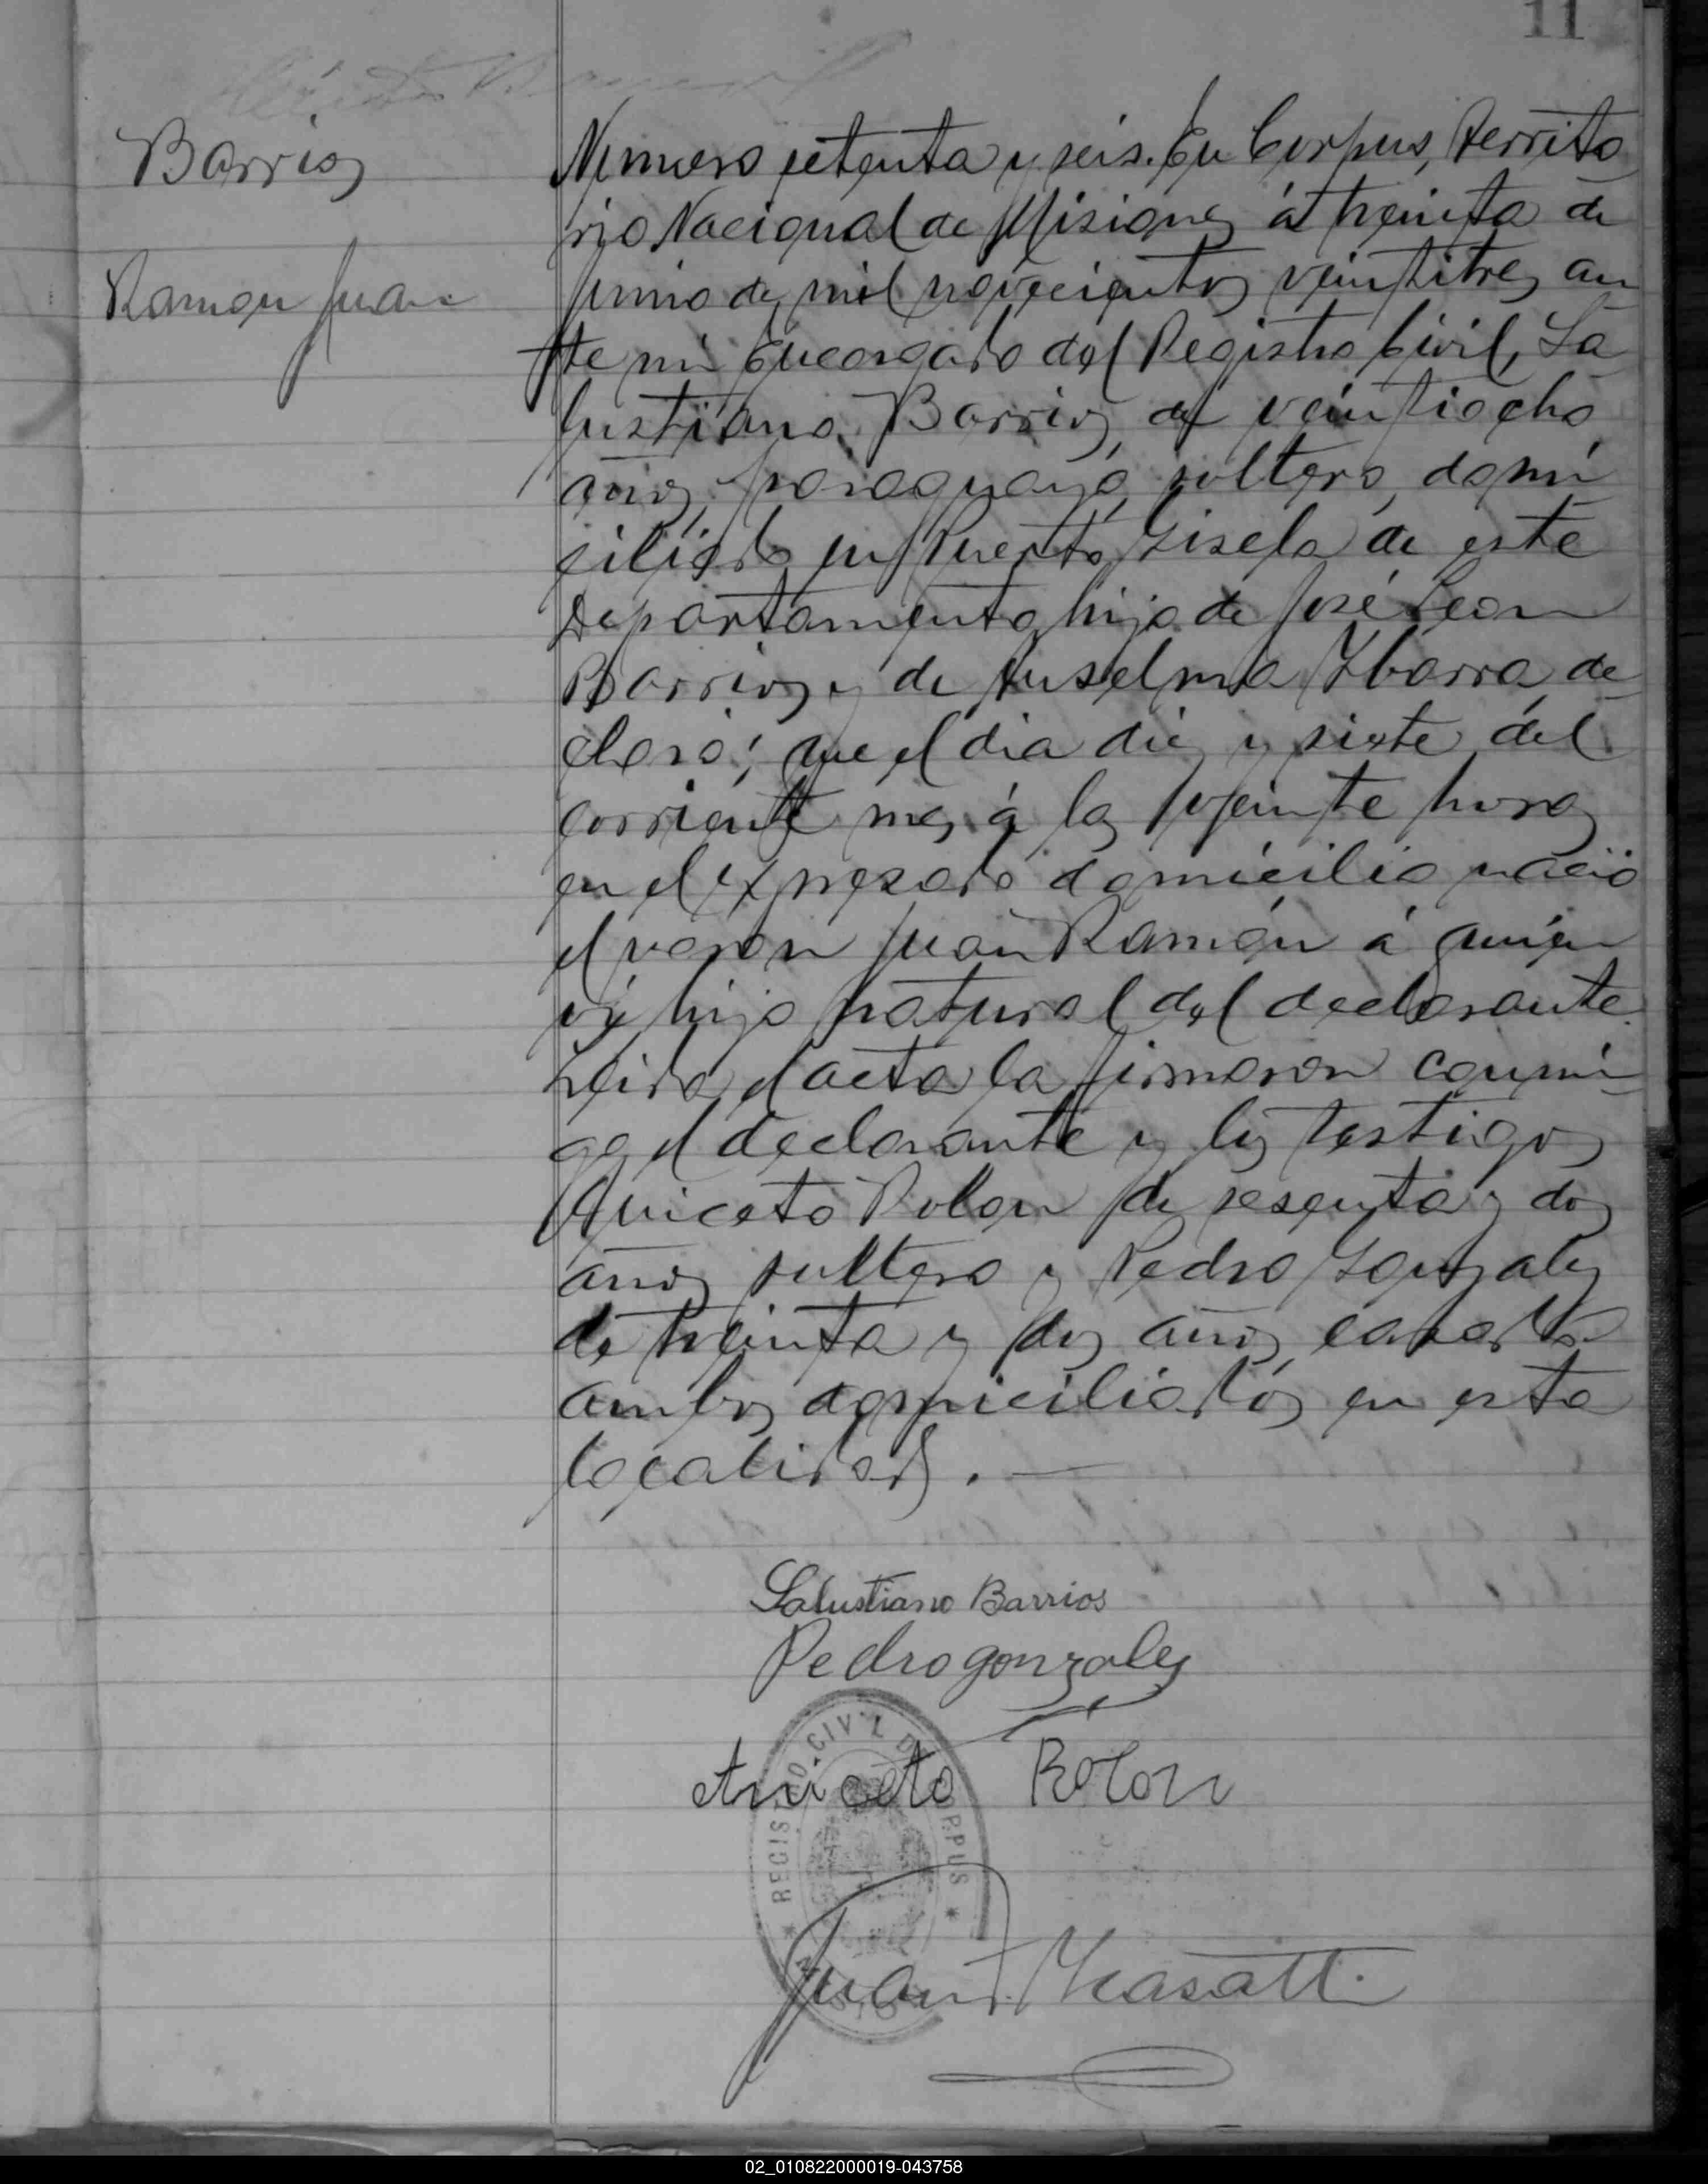 11
Barrios
Ramon Juan
Numero setenta y seis. En Corpus, Territo
rio Nacional de Misiones á treinta de
Junio de mil novecientos veintitres an
te mi Encargado del Registro Civil, Sa
lustiano Barrios, de veintiocho
años, paraguayo, soltero, domi
ciliado en Puerto Gisela de este
Departamento, hijo de José Leon
Barrios y de Anselma Ybarra, de
claró; que el dia diez y siete del
corriente mes, á las veinte horas
en el expresado domicilio nació
el varon Juan Ramón á quien
vi, hijo natural del declarante.
Leida el acta la firmaron conmi
go el declarante y los testigos
Aniceto Rolon de sesenta y dos
años soltero y Pedro Gonzales
de treinta y dos años, casado
ambos domiciliados en esta
localidad. —
Salustiano Barrios
Pedro gonzales
Aniceto Rolon
REGISTRO CIVIL DE CORPUS
Juan
02_010822000019-043758